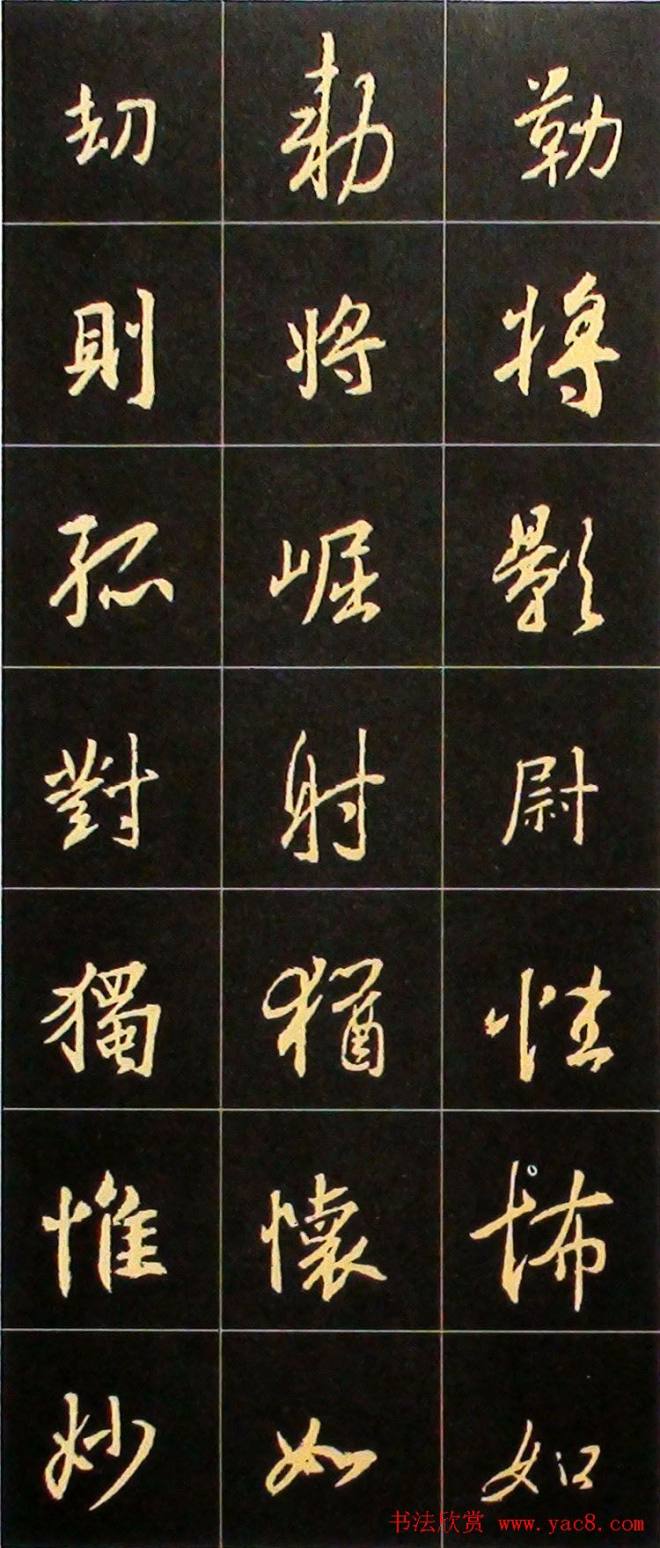 刧 勅 勒
則 將 將
孤 崛 影
對 射 尉
獨 猶 性
惟 懷 怖
妙 如 如
书法欣赏 www.yac8.com